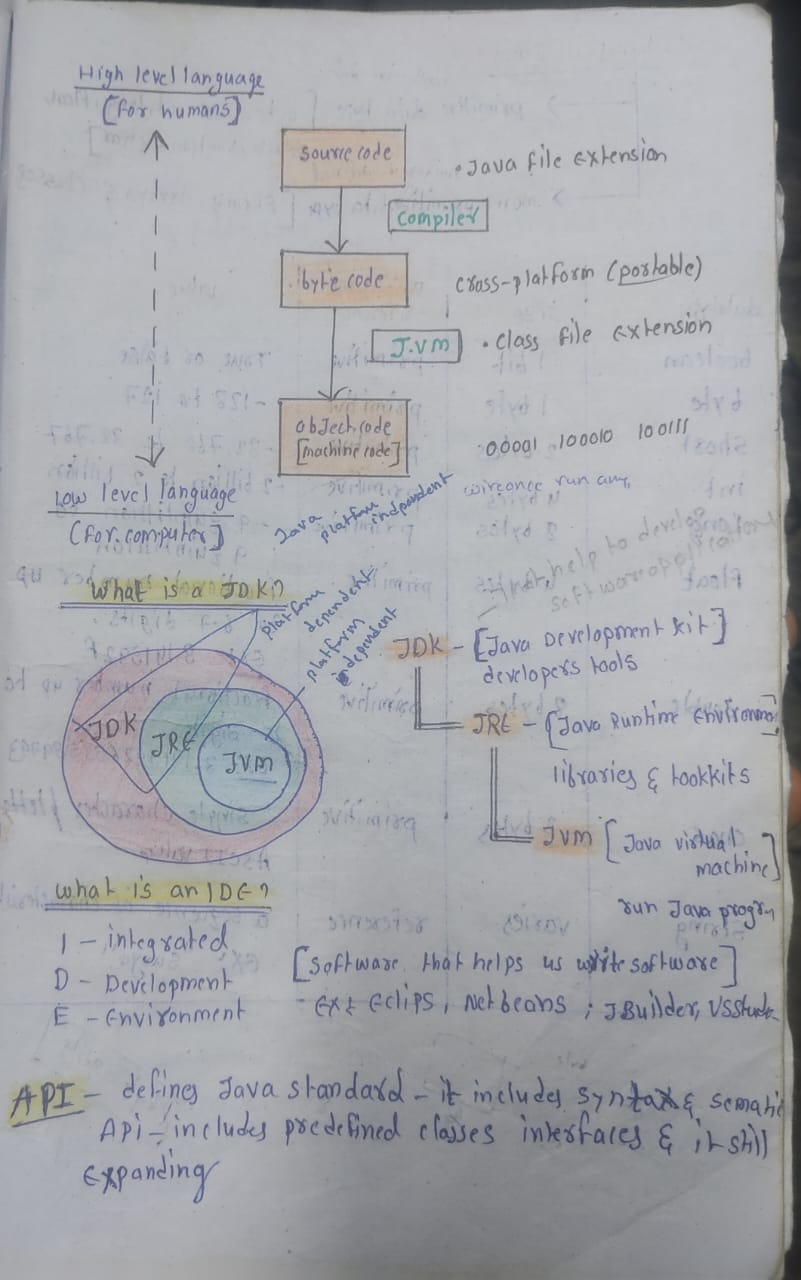 High level language
[for humans]
source code
.Java file extension
compiler
byte code
cross-platform (portable)
J.vm
.class file extension
object code
[machine code]
00001 100010 100111
Low level language
(for computer]
Java platform independent
run any
help to develop
software
What is a JDK?
platform dependent
platform independent
JDK
JRE
Jvm
JDK - [Java Development kit]
developers tools
JRE - [Java Runtime Environm
libraries & tookkits
Jvm [Java virtual
machine]
run Java progrm
what is an IDE?
I - integrated
D - Development
E - Environment
[software that helps us write software]
- Ex: Eclips, Netbeans ; JBuilder, VSStudio
API - defines Java standard - it includes syntax & sematic
Api - includes predefined classes interfaces & it still
expanding